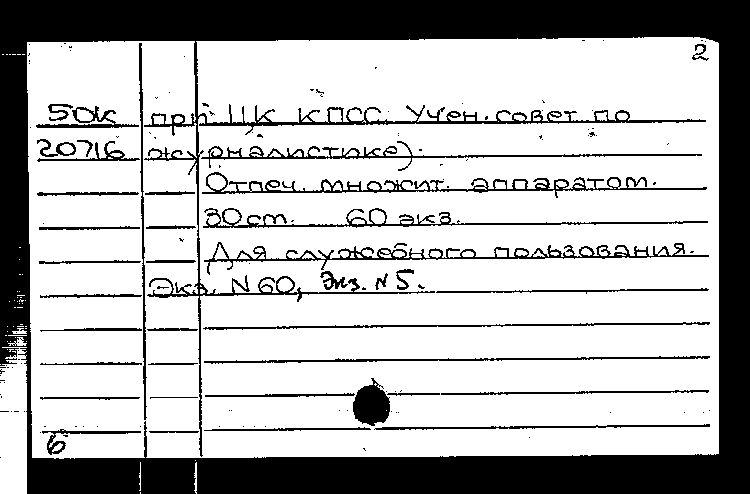 2
50К при ЦК КПСС. Учен. совет по
20716 журналистике).
Отпеч. множит. аппаратом.
30 ст. 60 экз.
Для служебного пользования.
Экз. N 60, Экз. N 5.
6